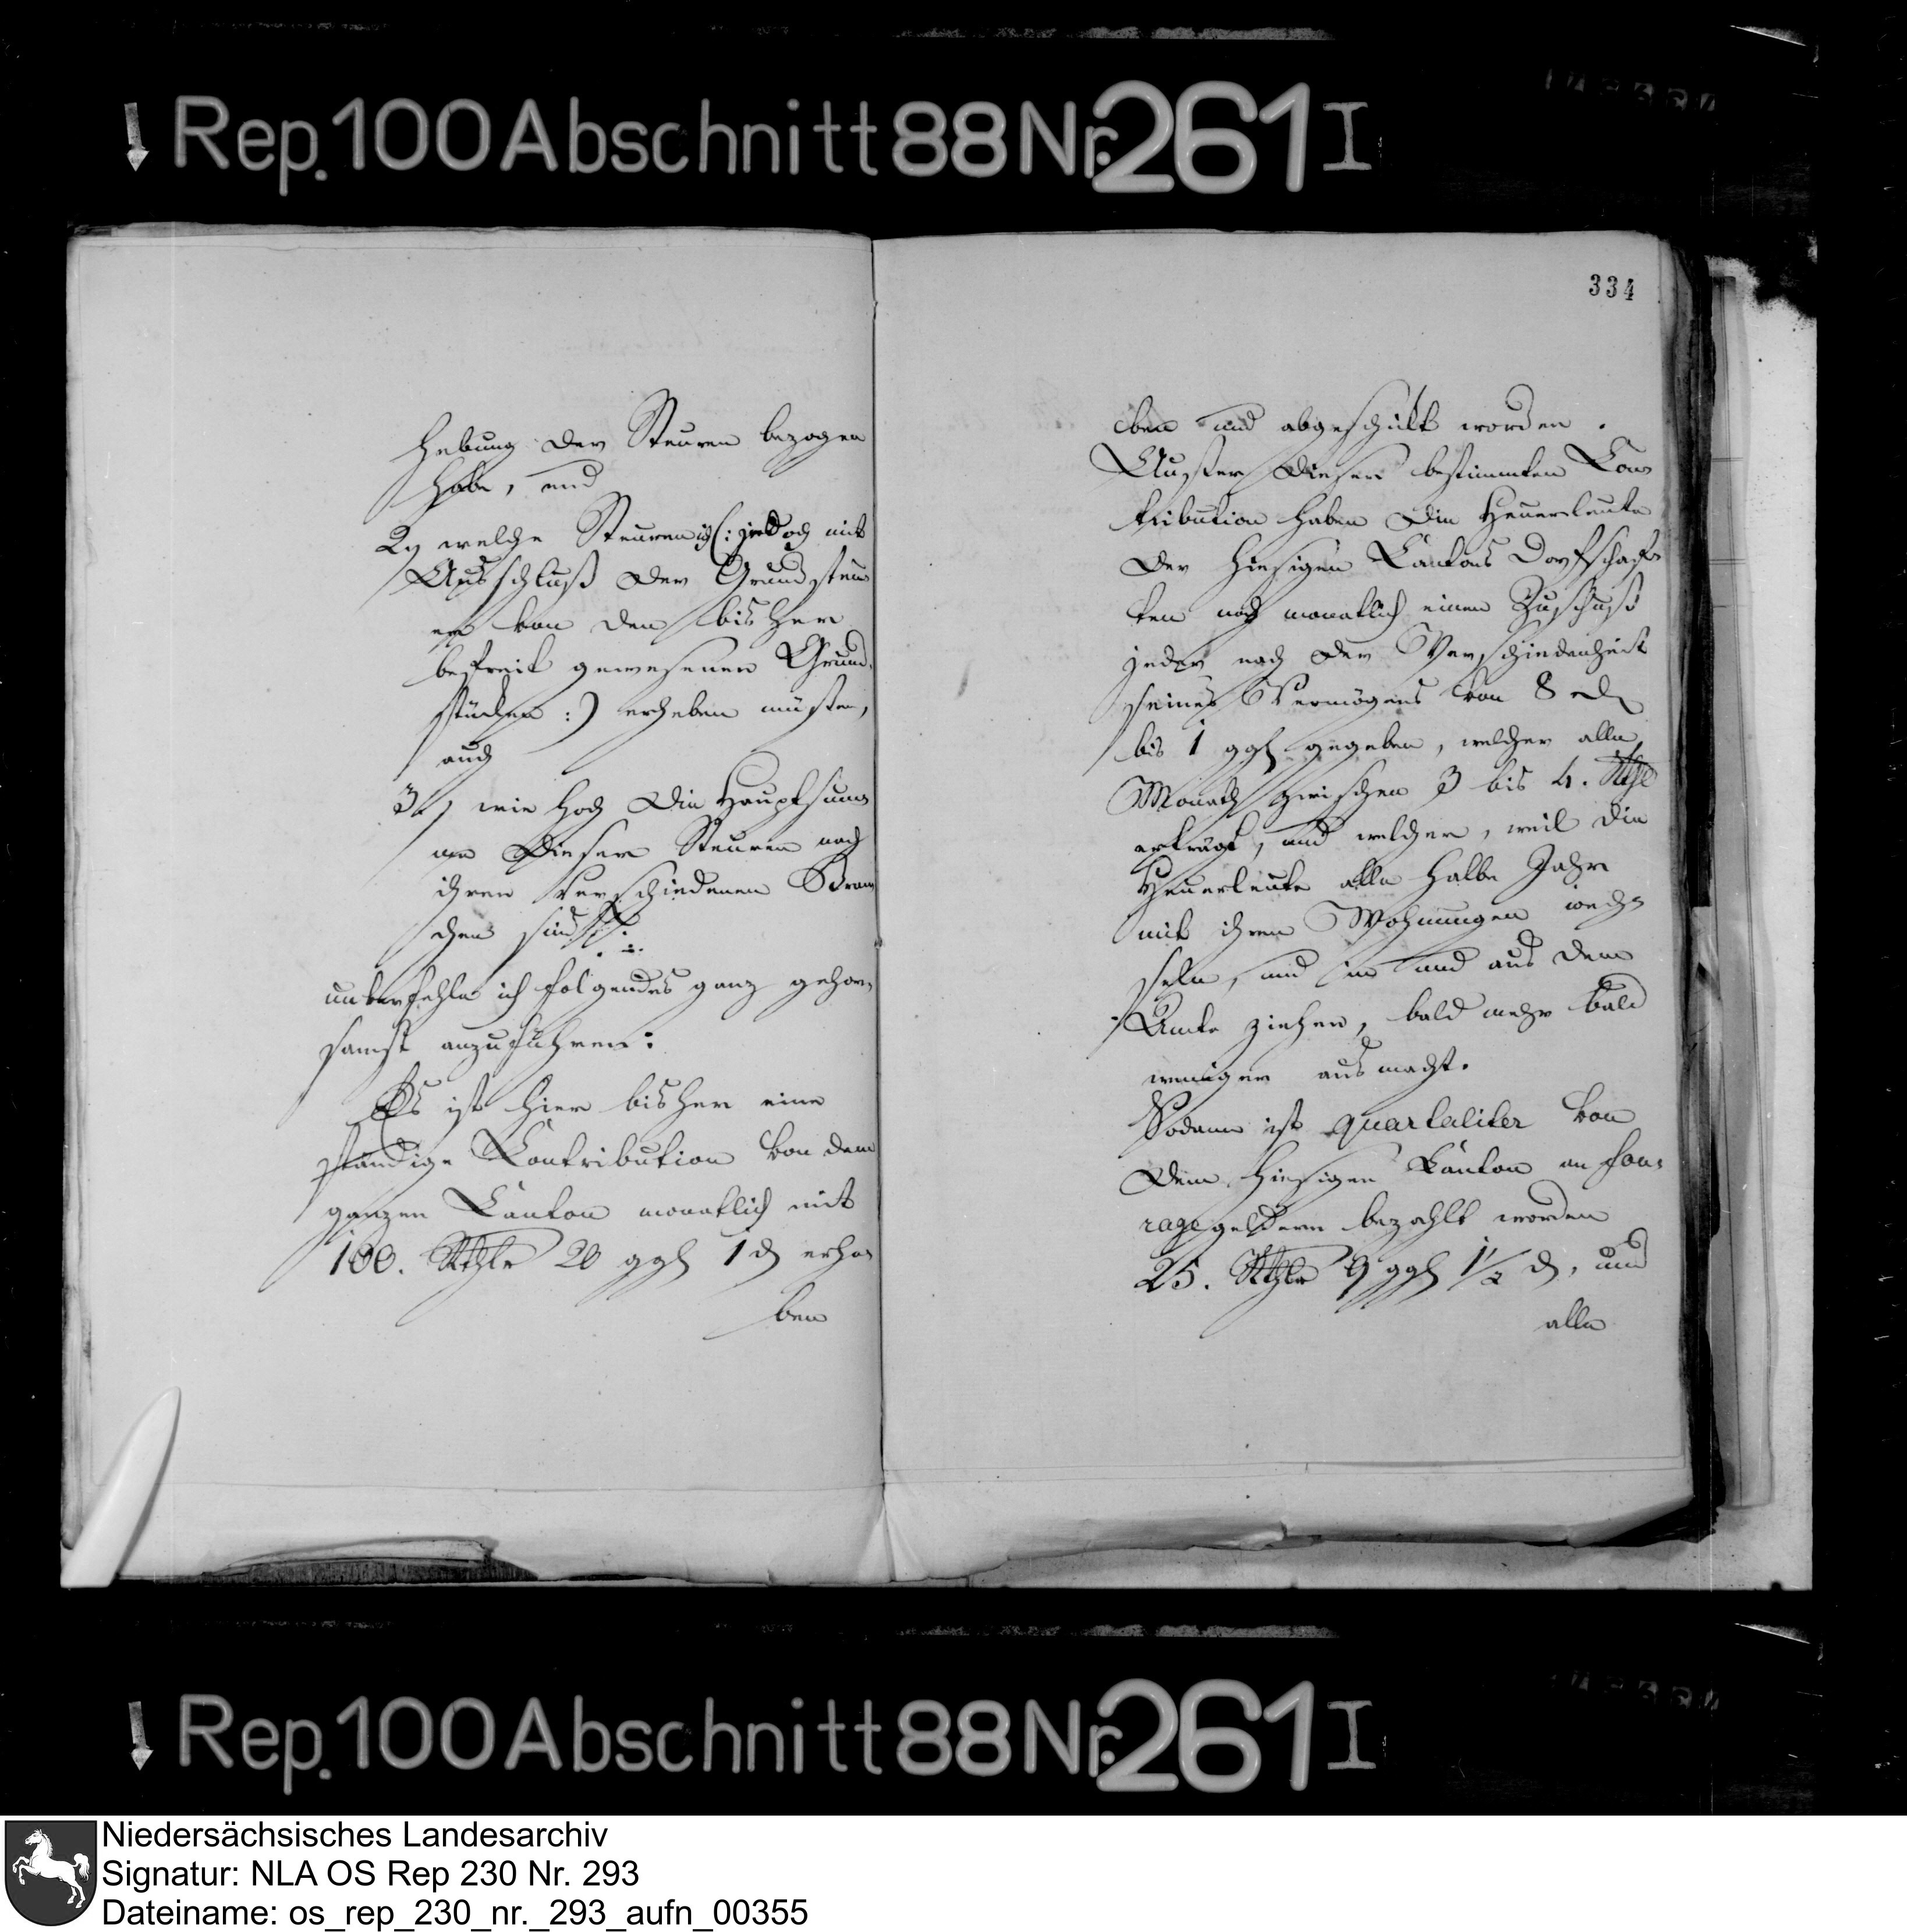 Rep. 100 Abschnitt 88 Nr. 261 I
hebung der Steuren bezogen
habe, und
2, welche Steuren ich (: jedoch mit
Ausschluß der Grundsteu
er von den bisher
befreit gewesenen Grund,
stücken :) erheben müsten,
auch
3., wie hoch die Hauptsum
me dieser Steuren nach
ihren verschiedenen Bran
chen sind
unterfehle ich folgendes ganz gehor,
samst anzuführen:
Es ist hier bisher eine
ständige Contribution von dem
ganzen Canton monatlich mit
100. Rthlr 20 ggl 1 d erho
ben
334
ben und abgeschikt worden.
Ausser dieser bestimmten Con
tribution haben die Heuerleute
der hiesigen Cantons Dorfschaf
ten noch monatlich einen Zuschuß
jeder nach der Verschiedenheit
seines Vermögens von 8 d
bis 1 ggl gegeben, welcher alle
Monath zwischen 3 bis 4. Rthlr
erträgt, und welcher, weil die
Heuerleute alle halbe Jahr
mit ihren Wohnungen wech
seln, und in und aus dem
Amte ziehen, bald mehr bald
weniger ausmacht.
Sodann ist quartaliter von
dem hiesigen Canton an fou
ragegeldern bezahlt worden
25. Rthlr 9 ggl 1/2 d, und
alle
Rep. 100 Abschnitt 88 Nr. 261 I
Niedersächsisches Landesarchiv
Signatur: NLA OS Rep 230 Nr. 293
Dateiname: os_rep_230_nr._293_aufn_00355